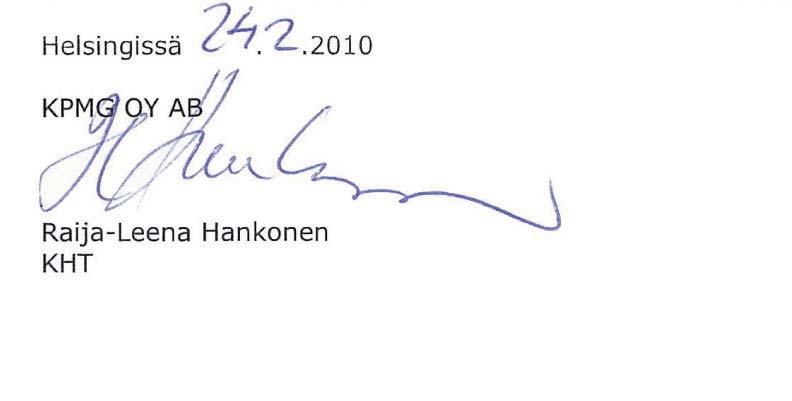 Helsingissä 24.2.2010
KPMG OY AB
Raija-Leena Hankonen
KHT